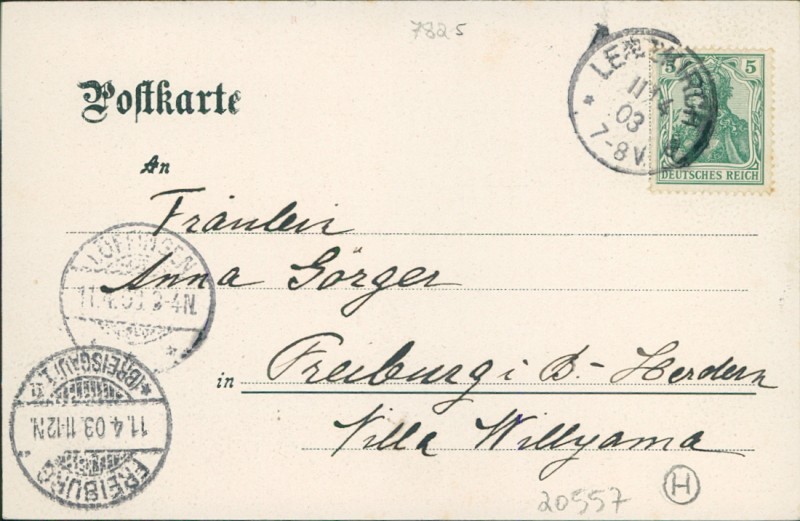 7825
LENZKIRCH
11 4
03
7-8 V.
5 5
DEUTSCHES REICH
Postkarte
An
Fräulein
Anna Görger
in Freiburg i B- Herdern
Villa Willyama
LÖFFINGEN
11.4.03 3-4N.
(BREISGAU) 1
11.4.03.11-12N.
FREIBURG
20557
H